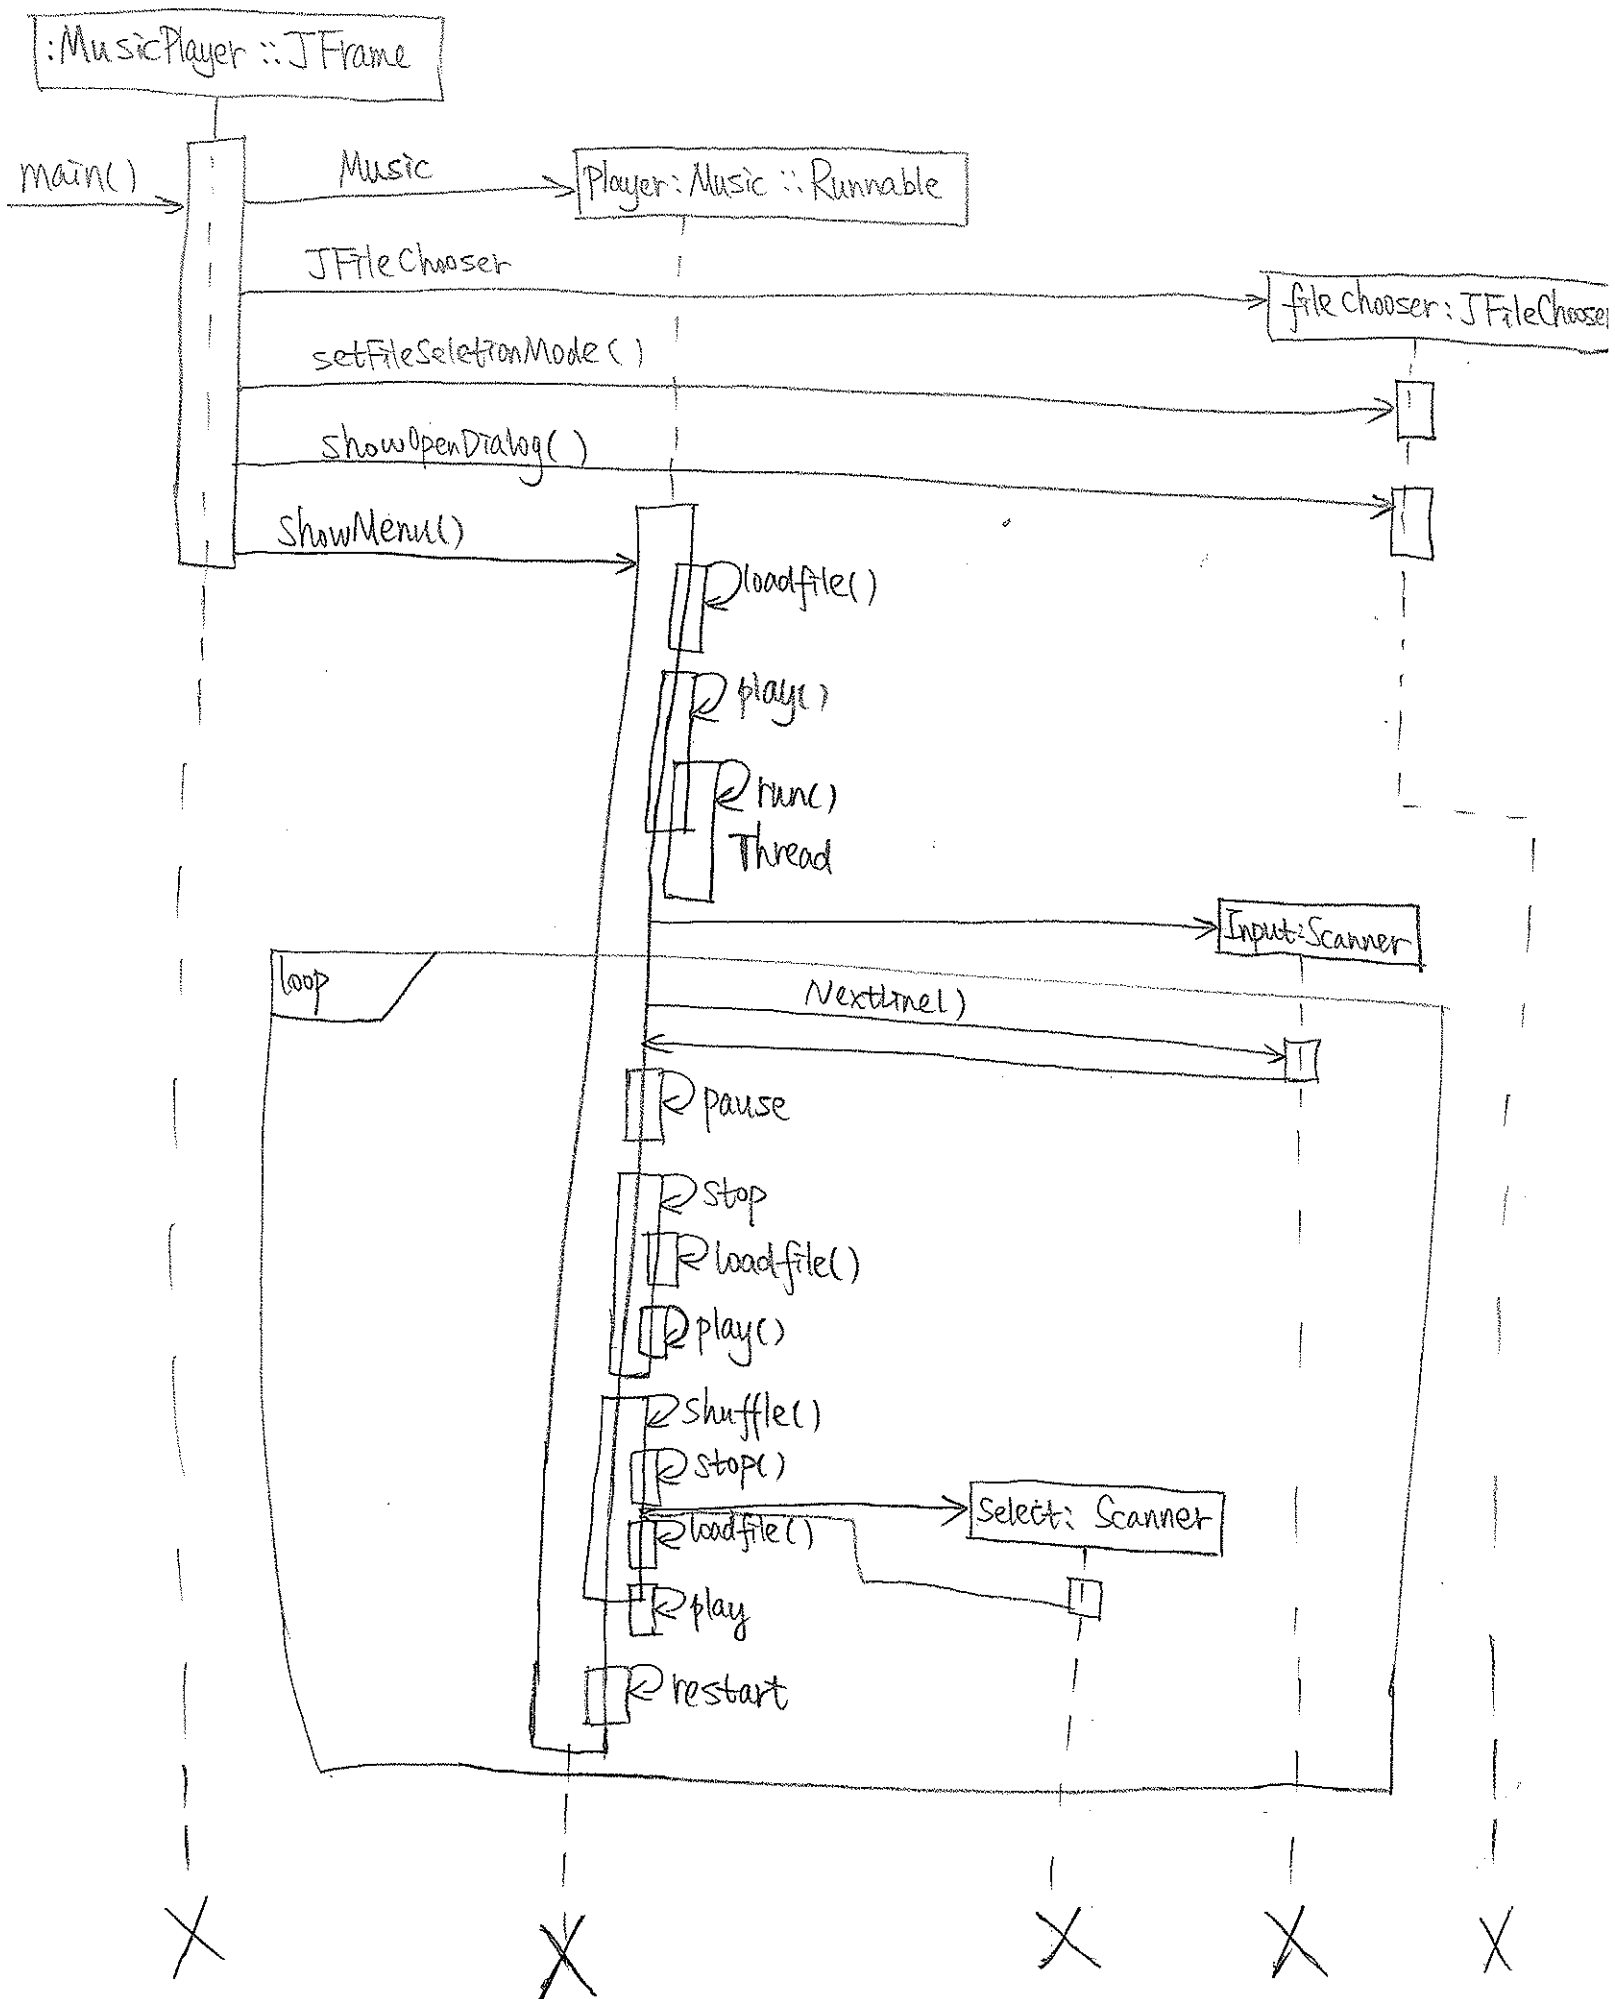 :MusicPlayer::JFrame
main()
Music
Player:Music::Runnable
JFileChooser
fileChooser:JFileChooser
setFileSeletionMode()
showOpenDialog()
ShowMenu()
loadfile()
play()
run()
Thread
Input:Scanner
loop
NextLine()
pause
stop
loadfile()
play()
Shuffle()
stop()
Select: Scanner
loadfile()
play
restart